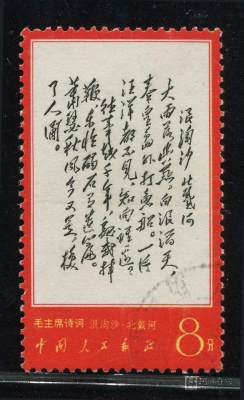 浪淘沙 北戴河
大雨落幽燕，白浪滔天，
秦皇岛外打鱼船。一片
汪洋都不见，知向谁边？
往事越千年，魏武挥
鞭，东临碣石有遗篇。
萧瑟秋风今又是，换
了人间。
毛主席诗词 浪淘沙·北戴河
中国人民邮政
8分